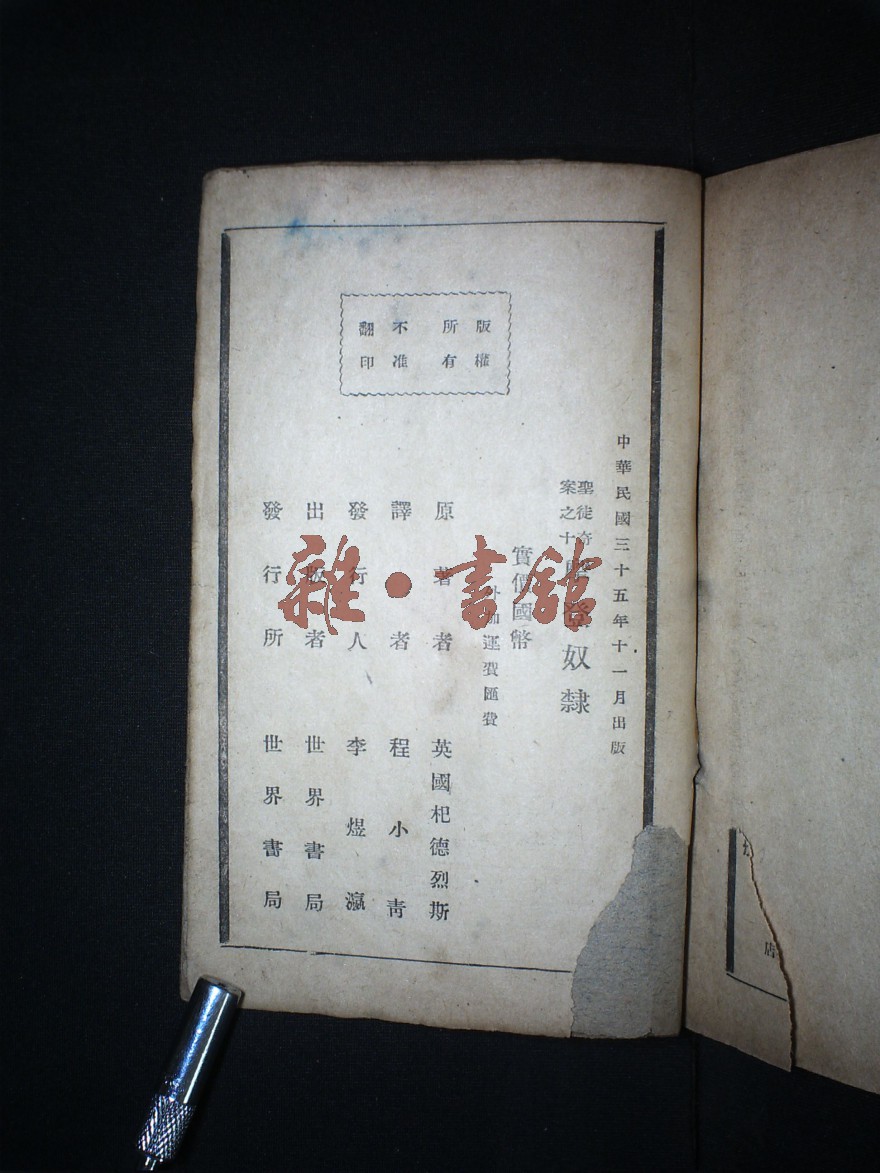 版權
所有
不准
翻印
中華民國三十五年十一月出版
聖徒奇
案之十
登奴隸
實價國幣
外加運費匯費
原著者 英國杞德烈斯
譯者 程小青
發行人 李煜瀛
出版者 世界書局
發行所 世界書局
雜·書館
店